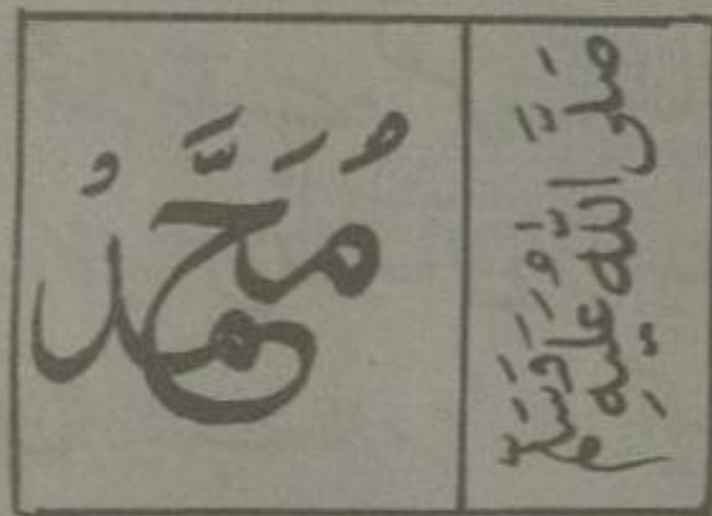 مُحَمَّدُ
صَلَّى اللّٰهُ عَلَيْهِ وَسَلَّمَ